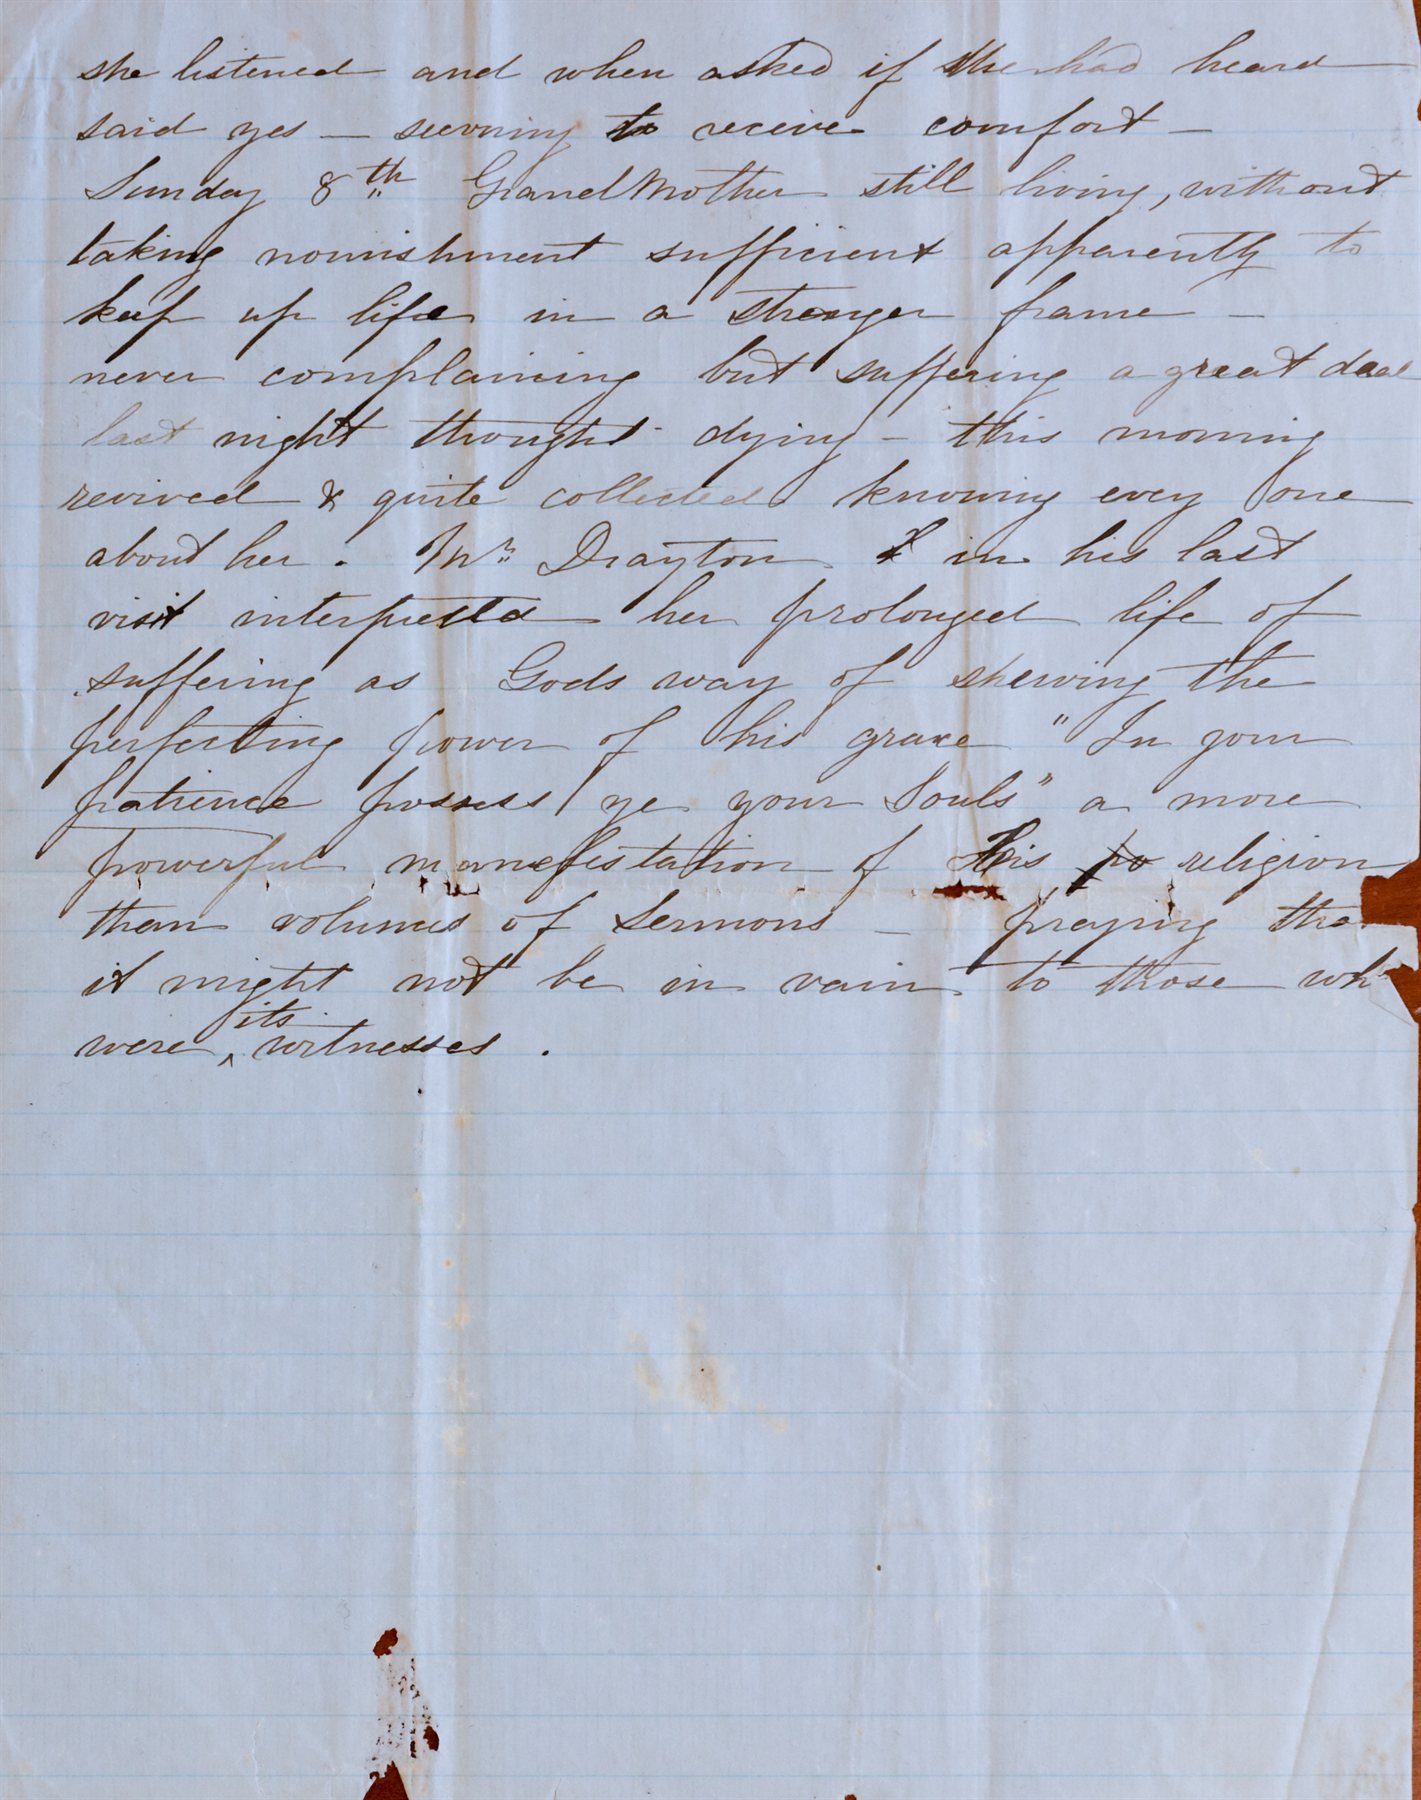 she listened and when asked if she had heard
said yes — seeming to receive comfort —
Sunday 8th GrandMother still living, without
taking nourishment sufficient apparently to
keep up life in a stronger frame —
never complaining but suffering a great deal
last night thought dying — this morning
revived & quite collected knowing every one
about her. Mr Drayton in his last
visit interpreted her prolonged life of
suffering as Gods way of shewing the
perfecting power of his grace "In your
patience possess ye your Souls" a more
powerful manefestation of His religion
than volumes of Sermons — praying tha
it might not be in vain to those wh
were its witnesses.